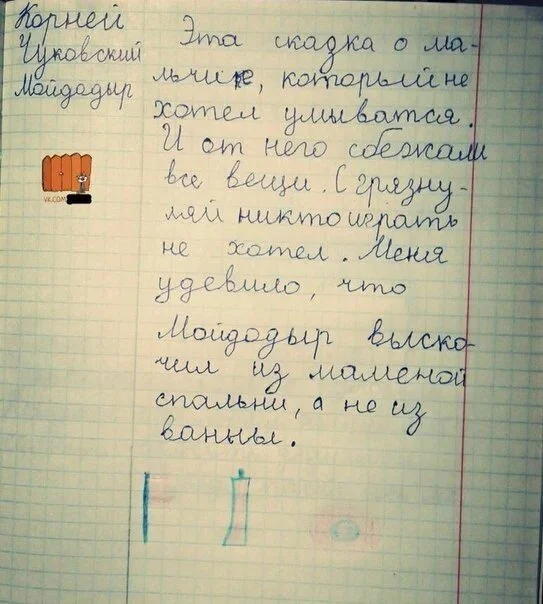 Корней
Чуковский
Мойдодыр
Эта сказка о ма-
льчике, который не
хотел умыватся.
И от него сбежали
все вещи. С грязну-
ляй никто играть
не хотел. Меня
удевило, что
Мойдодыр выско-
чил из маменой
спальни, а не из
ванны.
VK.COM